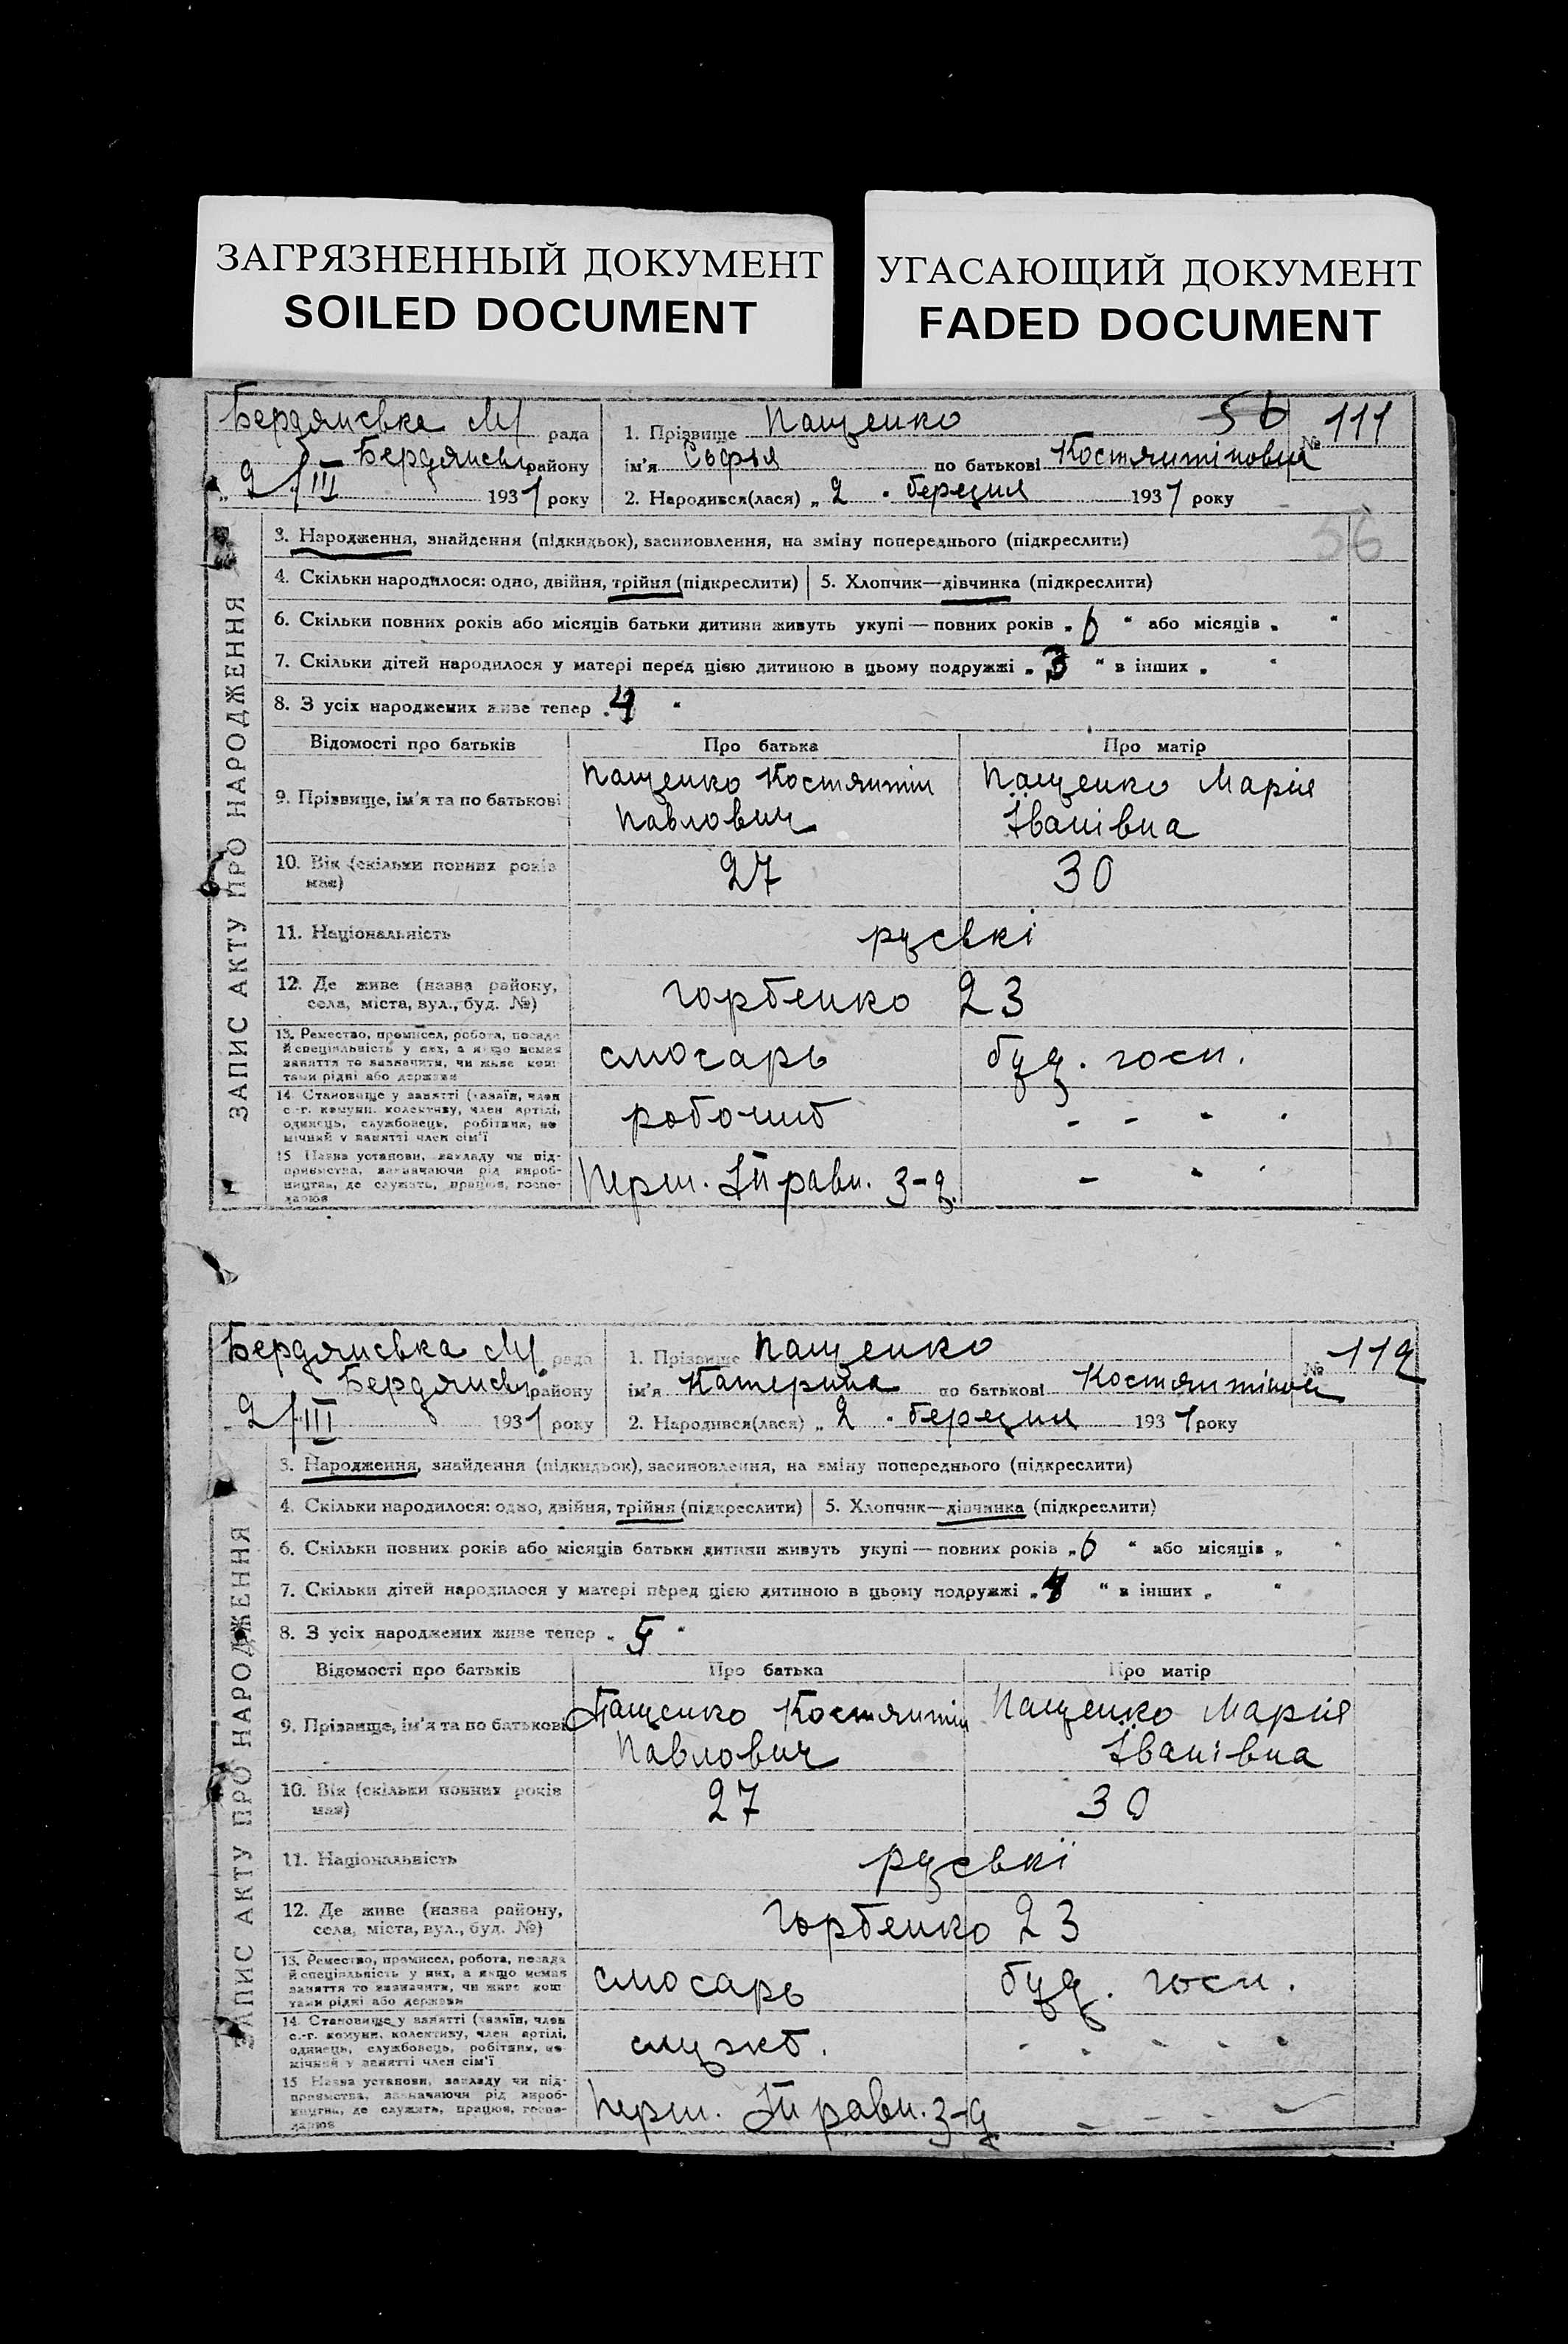 ЗАГРЯЗНЕННЫЙ ДОКУМЕНТ
SOILED DOCUMENT
УГАСАЮЩИЙ ДОКУМЕНТ
FADED DOCUMENT
Бердянська М рада
Бердянськ району
2/III 1931 року
1. Прізвище Пащенко 56 № 111
ім'я Софья по батькові Костянтіновна
2. Народився(лася) „ 2 " березня 1931 року
56
ЗАПИС АКТУ ПРО НАРОДЖЕННЯ
3. Народження, знайдення (підкидьок), засиновлення, на зміну попереднього (підкреслити)
4. Скільки народилося: одно, двійня, трійня (підкреслити) 5. Хлопчик—дівчинка (підкреслити)
6. Скільки повних років або місяців батьки дитини живуть укупі — повних років „ 6 " або місяців „ "
7. Скільки дітей народилося у матері перед цією дитиною в цьому подружжі „ 3 " в інших „ "
8. З усіх народжених живе тепер „ 4 "
Відомості про батьків Про батька Про матір
9. Прізвище, ім'я та по батькові Пащенко Костянтін Павлович Пащенко Марія Іванівна
10. Вік (скільки повних років має) 27 30
11. Національність руські
12. Де живе (назва району, села, міста, вул., буд. №) Горбенко 23
13. Ремество, промисел, робота, посада й спеціальність у них, а якщо немає заняття то зазначити, чи живе коштами рідні або держави слюсарь буд. госп.
14. Становище у занятті (хазяїн, член с.-г. комуни, колективу, член артілі, одинець, службовець, робітник, помічний у занятті член сім'ї робочий - - - -
15. Назва установи, закладу чи підприємства, зазначаючи рід виробництва, де служить, працює, господарює Перш. Травн. з-д. - - -
Бердянська М рада
Бердянськ району
2/III 1931 року
1. Прізвище Пащенко № 112
ім'я Катерина по батькові Костянтінов
2. Народився(лася) „ 2 " березня 1931 року
ЗАПИС АКТУ ПРО НАРОДЖЕННЯ
3. Народження, знайдення (підкидьок), засиновлення, на зміну попереднього (підкреслити)
4. Скільки народилося: одно, двійня, трійня (підкреслити) 5. Хлопчик—дівчинка (підкреслити)
6. Скільки повних років або місяців батьки дитини живуть укупі — повних років „ 6 " або місяців „ "
7. Скільки дітей народилося у матері перед цією дитиною в цьому подружжі „ 4 " в інших „ "
8. З усіх народжених живе тепер „ 5 "
Відомості про батьків Про батька Про матір
9. Прізвище, ім'я та по батькові Пащенко Костянтін Павлович Пащенко Марія Іванівна
10. Вік (скільки повних років має) 27 30
11. Національність руські
12. Де живе (назва району, села, міста, вул., буд. №) Горбенко 23
13. Ремество, промисел, робота, посада й спеціальність у них, а якщо немає заняття то зазначити, чи живе коштами рідні або держави слюсарь буд. госп.
14. Становище у занятті (хазяїн, член с.-г. комуни, колективу, член артілі, одинець, службовець, робітник, помічний у занятті член сім'ї служб. - - - - -
15. Назва установи, закладу чи підприємства, зазначаючи рід виробництва, де служить, працює, господарює Перш. Травн. з-д - - - -